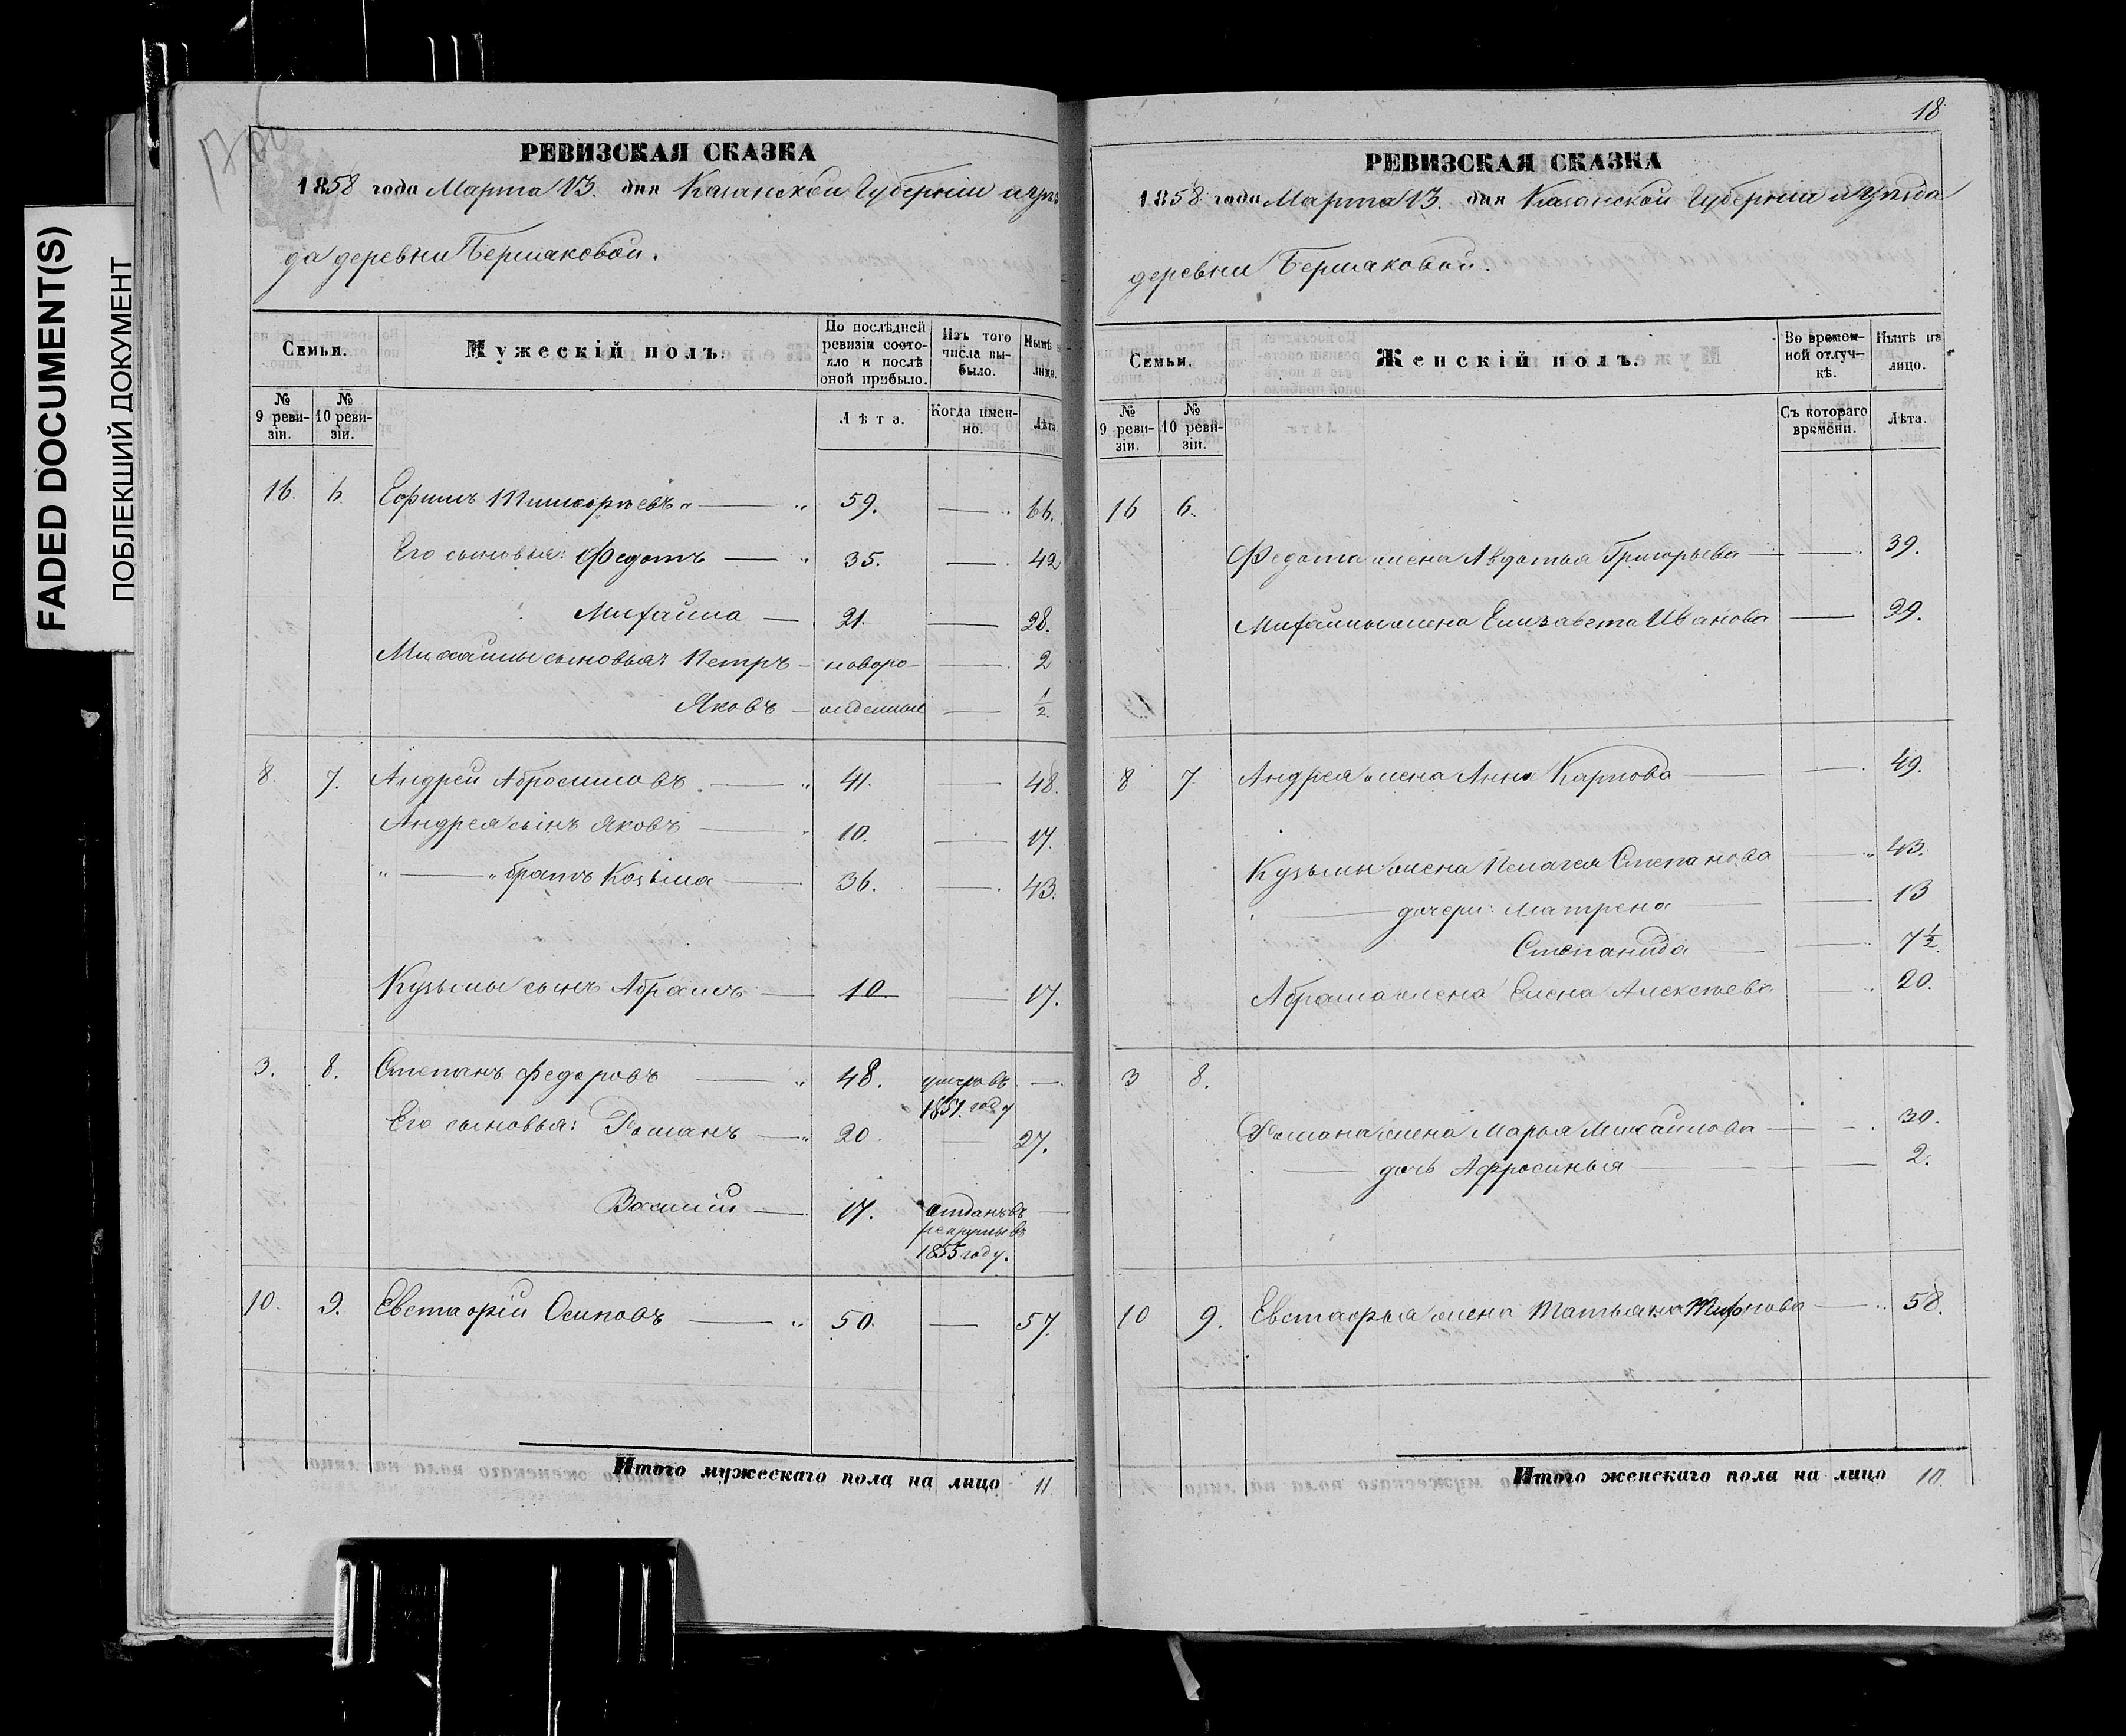 FADED DOCUMENT(S)
ПОБЛЕКШИЙ ДОКУМЕНТ
РЕВИЗСКАЯ СКАЗКА
1858 года Марта 13. дня Казанской Губернии и уѣз
да деревни Бермаковой.
Семьи.
Мужескій полъ.
По послѣдней ревизіи состояло и послѣ оной прибыло.
Изъ того числа выбыло.
Нынѣ на лицо.
№ 9 ревизіи.
№ 10 ревизіи.
Лѣта.
Когда именно.
Лѣта.
16. 6. Ефимъ 59. — 66.
Его сыновья: Федотъ — 35. — 42
Михайла — 21. — 28.
Михайлы сыновья: Петръ — новоро — 2
Яковъ — жденные — 1/2
8. 7. Андрей Абросимовъ — 41. — 48.
Андрея сынъ Яковъ — 10. — 17.
" — " братъ Козьма — 36. — 43.
Кузьмы сынъ Абрамъ — 10 — 17.
3. 8. Степанъ Федоровъ — 48. умеръ въ —
1851. году
Его сыновья: Романъ — 20 — 27.
Василій — 17. отданъ въ —
рекруты въ
1855 году.
10. 9. Евстафій Осиповъ — 50. — 57.
Итого мужескаго пола на лицо 11
18
РЕВИЗСКАЯ СКАЗКА
1858 года Марта 13. дня Казанской Губерніи и уѣзда
деревни Бермаковой.
Семьи.
Женскій полъ.
Во временной отлучкѣ.
Нынѣ на лицо.
№ 9 ревизіи.
№ 10 ревизіи.
Съ котораго времени.
Лѣта.
16 6.
Федота жена Авдотья Григорьева — 39.
Михайлы жена Елизавета Иванова — 29.
8 7 Андрея жена Анна Карпова — 49.
Кузьмы жена Пелагея Степанова — 43.
— дочери: Матрена — 13
Степанида — 7 1/2
Абрама жена Елена Алексѣева — 20.
3 8.
Романа жена Марья Михайлова — 30.
— дочь Афросинья — 2.
10 9. Евстафья жена Татьяна — 58.
Итого женскаго пола на лицо 10.